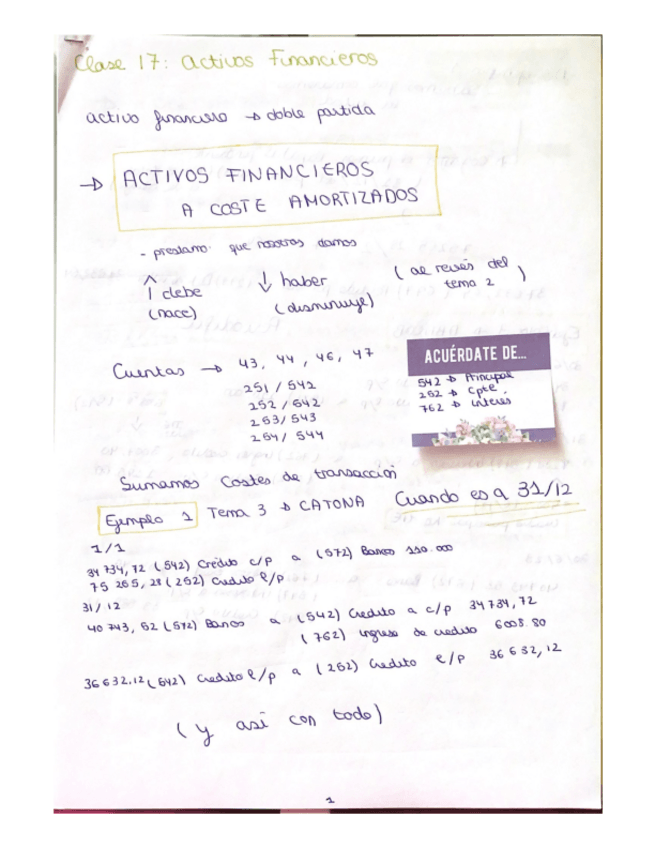 Clase 17: Activos Financieros
activo financiero → doble partida
→ ACTIVOS FINANCIEROS
A COSTE AMORTIZADOS
- prestamo que nosotros damos
↑ debe ↓ haber (al revés del
(nace) (disminuye) tema 2)
Cuentas → 43, 44, 46, 47
251 / 542
252 / 542
253 / 543
254 / 544
ACUÉRDATE DE...
542 → Principal
252 → Cpte.
762 → interés
Sumamos Costes de transacción
Ejemplo 1 Tema 3 → CATONA Cuando es a 31/12
1/1
34 734,72 (542) Crédito c/p a (572) Banco 110.000
75 265,28 (252) Credito l/p
31/12
40 743,52 (572) Banos a (542) Credito a c/p 34734,72
(762) ingreso de credito 6008.80
36632.12 (542) Credito l/p a (252) Credito l/p 36632,12
(y asi con todo)
1